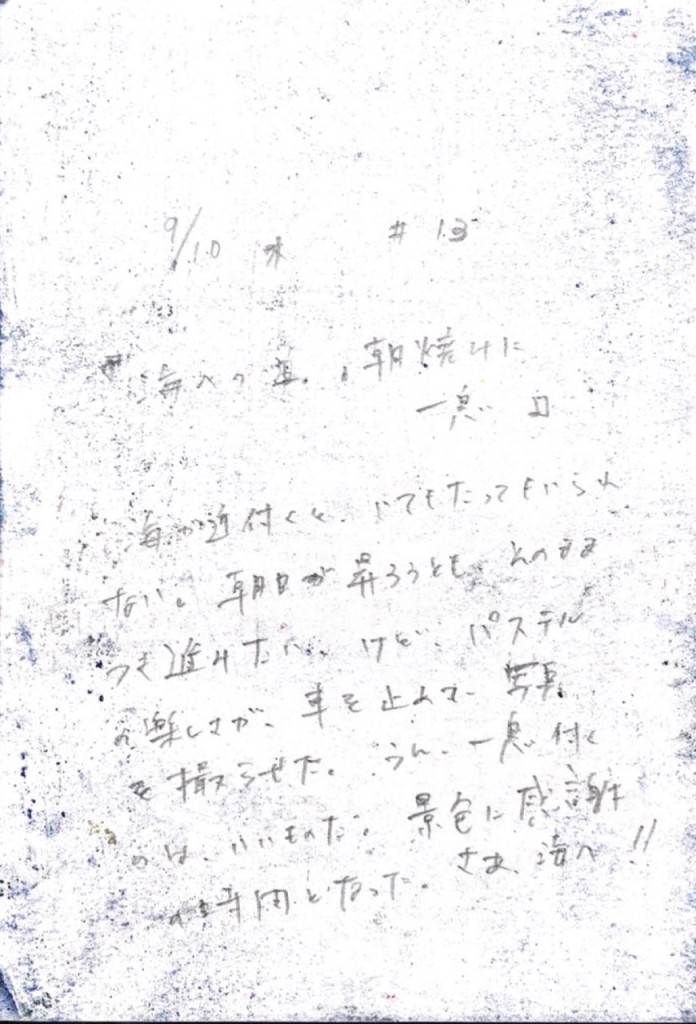 9/10 水 #13
海への道。朝焼けに
一息
海が近付くと、いてもたってもいられ
ない。朝日が昇ろうとも、そのまま
つき進みたい。けど、パステル
の楽しさが、車を止めて、写真
を撮らせた。うん、一息付く
のは、いいものだ。景色に感謝
の時間となった。さあ、海へ!!